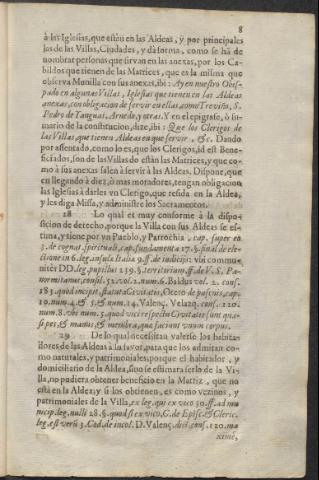 8
à las Iglesias, que estàn en las Aldeas, y por principales
los de las Villas, Ciudades, y dà forma, como se hà de
nombrar personas que sirvan en las anexas, por los Ca-
bildos que tienen de las Matrices, que es la misma que
observa Monilla con sus, ibi: Ay en nuestro Obis-
pado en algunas Villas, Iglesias que tienen en las Aldeas
anexas, con obligacion de servir en ellas, como Treviño, S.
Pedro de Tanguas, Arnedo, y otras. Y en el epigrafe, ò su-
mario de la constitucion, dize, ibi: Que los Clerigos de
las Villas, que tienen Aldeas en que servir, &c. Dando
por assentado, como lo es, que los Clerigos, id est Bene-
ficiados, son de las Villas do estàn las Matrices, y que co-
mo à sus anexas salen à servir à las Aldeas. Dispone, que
en llegando à diez, ò mas moradores, tengan obligacion
las Iglesias à darles vn Clerigo, que resida en la Aldea,
y les diga Missa, y administre los Sacramentos.
28 Lo qual es muy conforme à la dispo-
sicion de derecho, porque la Villa con sus Aldeas se es-
tima, y tiene por vn Pueblo, y Parrochia, cap. super eo
3. de cognat. spirituali, cap. fundamenta 17. §. final de ele-
ctione in 6. leg. insula Italia 9. ff. de iudicijs: vbi commu-
nitèr DD. leg. pupillus 239. §. territorium, ff. de V. S. Pa-
normitanus, consil. 32. vol. 2. num. 6. Baldus vol. 2. cons.
183. quod incipit, statuta Civitatis, Otero de pascuis, cap.
19. num. 4. & 5. & num. 14. Valenç. Velazq. cons. 120.
num. 8. vbi num. 5. quod vici respectu Civitatis sunt qua-
si pes, & manus, & membra, quæ faciunt vnum corpus.
29 De lo qual necesitan valerse los habita-
dores de las Aldeas à la favor, para que los admitan co-
mo naturales, y patrimoniales, porque el habitador, y
domiciliario de la Aldea, sino se estimàra serlo de la Vi-
lla, no pudiera obtener beneficio en la Matriz, que no
està en la Aldea; y si los obtienen, es como vezinos, y
patrimoniales de la Villa, ex leg. qui ex vico 30. ff. ad mu-
nicip. leg. nulli 28. §. quod si ex vico, C. de Episc. & Cleric.
leg. est verũ 3. Cod. de incol. D. Valenç. dict. cons. 120. ma-
ximè,